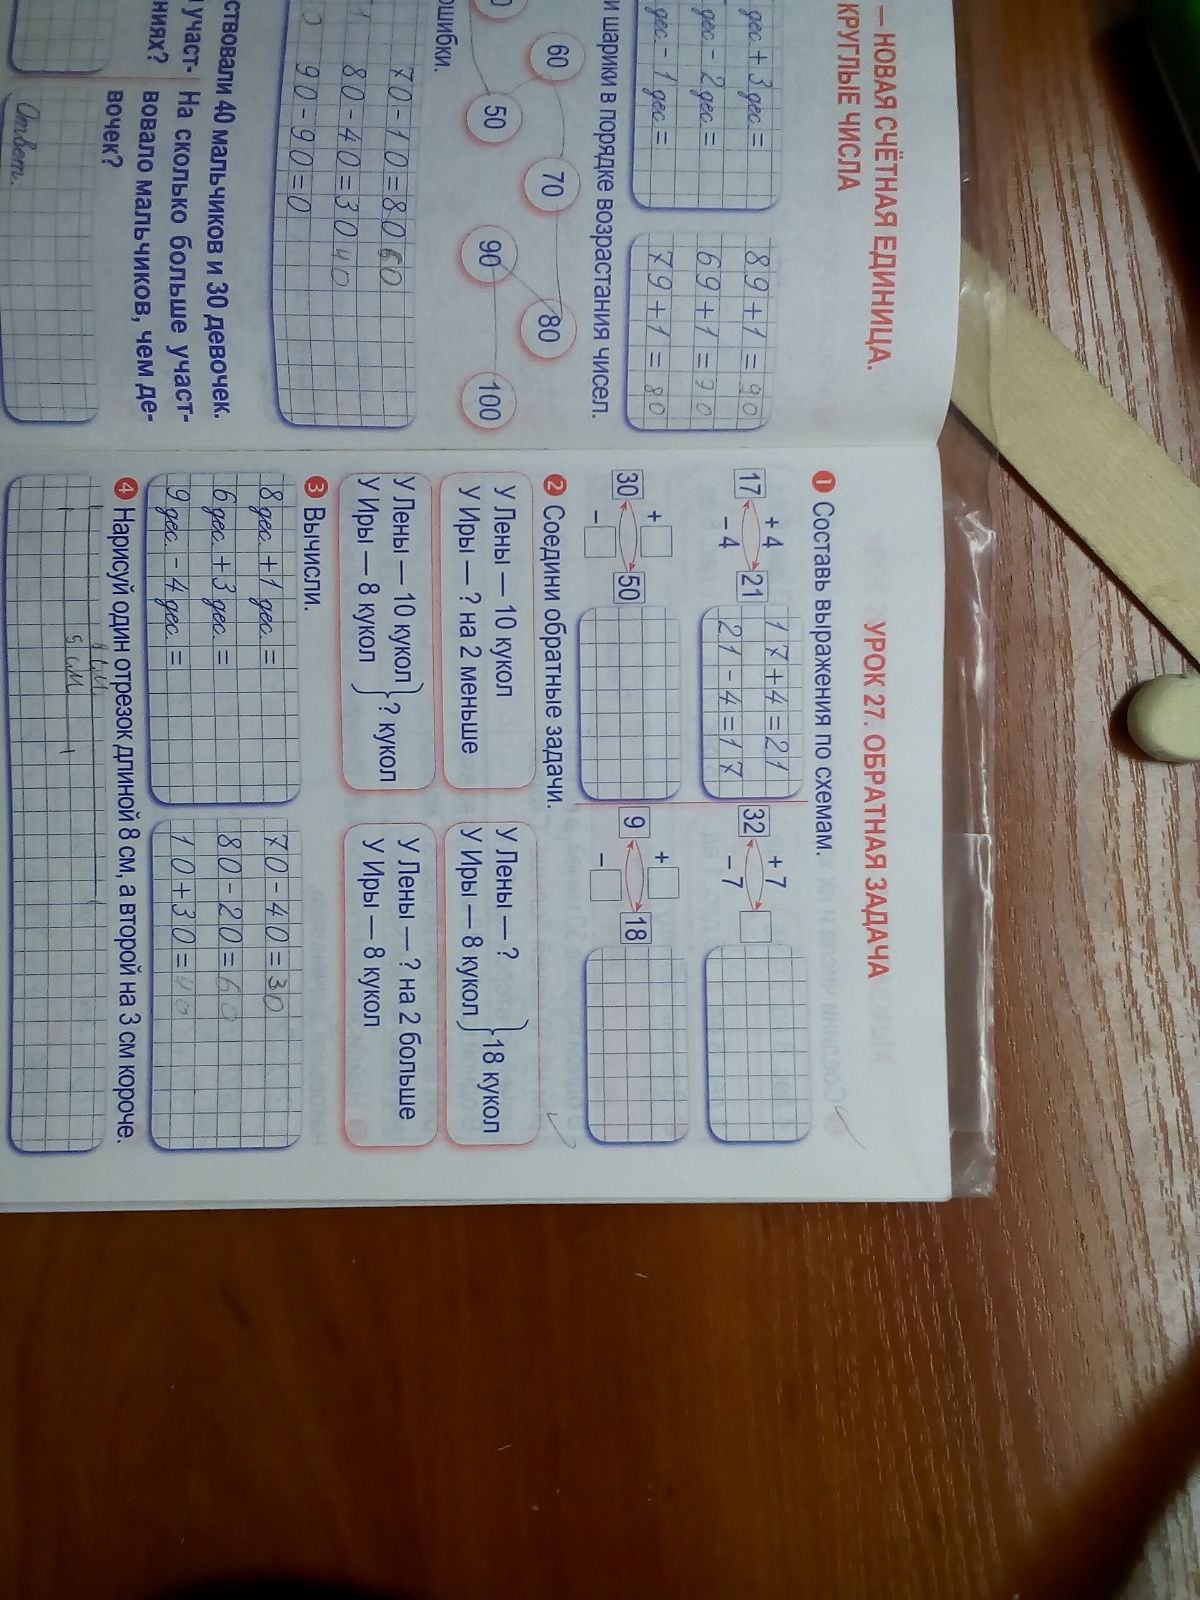 — НОВАЯ СЧЁТНАЯ ЕДИНИЦА.
КРУГЛЫЕ ЧИСЛА
дес + 3 дес =
дес - 2 дес =
дес - 1 дес =
89 + 1 = 90
69 + 1 = 70
79 + 1 = 80
и шарики в порядке возрастания чисел.
60
70
80
50
90
100
ошибки.
70 - 10 = 80 60
80 - 40 = 30 40
90 - 90 = 0
ствовали 40 мальчиков и 30 девочек.
участ-
ниях?
На сколько больше участ-
вовало мальчиков, чем де-
вочек?
Ответ:
УРОК 27. ОБРАТНАЯ ЗАДАЧА
1 Составь выражения по схемам.
17 + 4 21
- 4
17 + 4 = 21
21 - 4 = 17
32 + 7
- 7
30 + 50
-
9 + 18
-
2 Соедини обратные задачи.
У Лены — 10 кукол
У Иры — ? на 2 меньше
У Лены — ?
У Иры — 8 кукол
18 кукол
У Лены — 10 кукол
У Иры — 8 кукол
? кукол
У Лены — ? на 2 больше
У Иры — 8 кукол
3 Вычисли.
8 дес. + 1 дес. =
6 дес. + 3 дес. =
9 дес. - 4 дес. =
70 - 40 = 30
80 - 20 = 60
10 + 30 = 40
4 Нарисуй один отрезок длиной 8 см, а второй на 3 см короче.
8 см
5 см